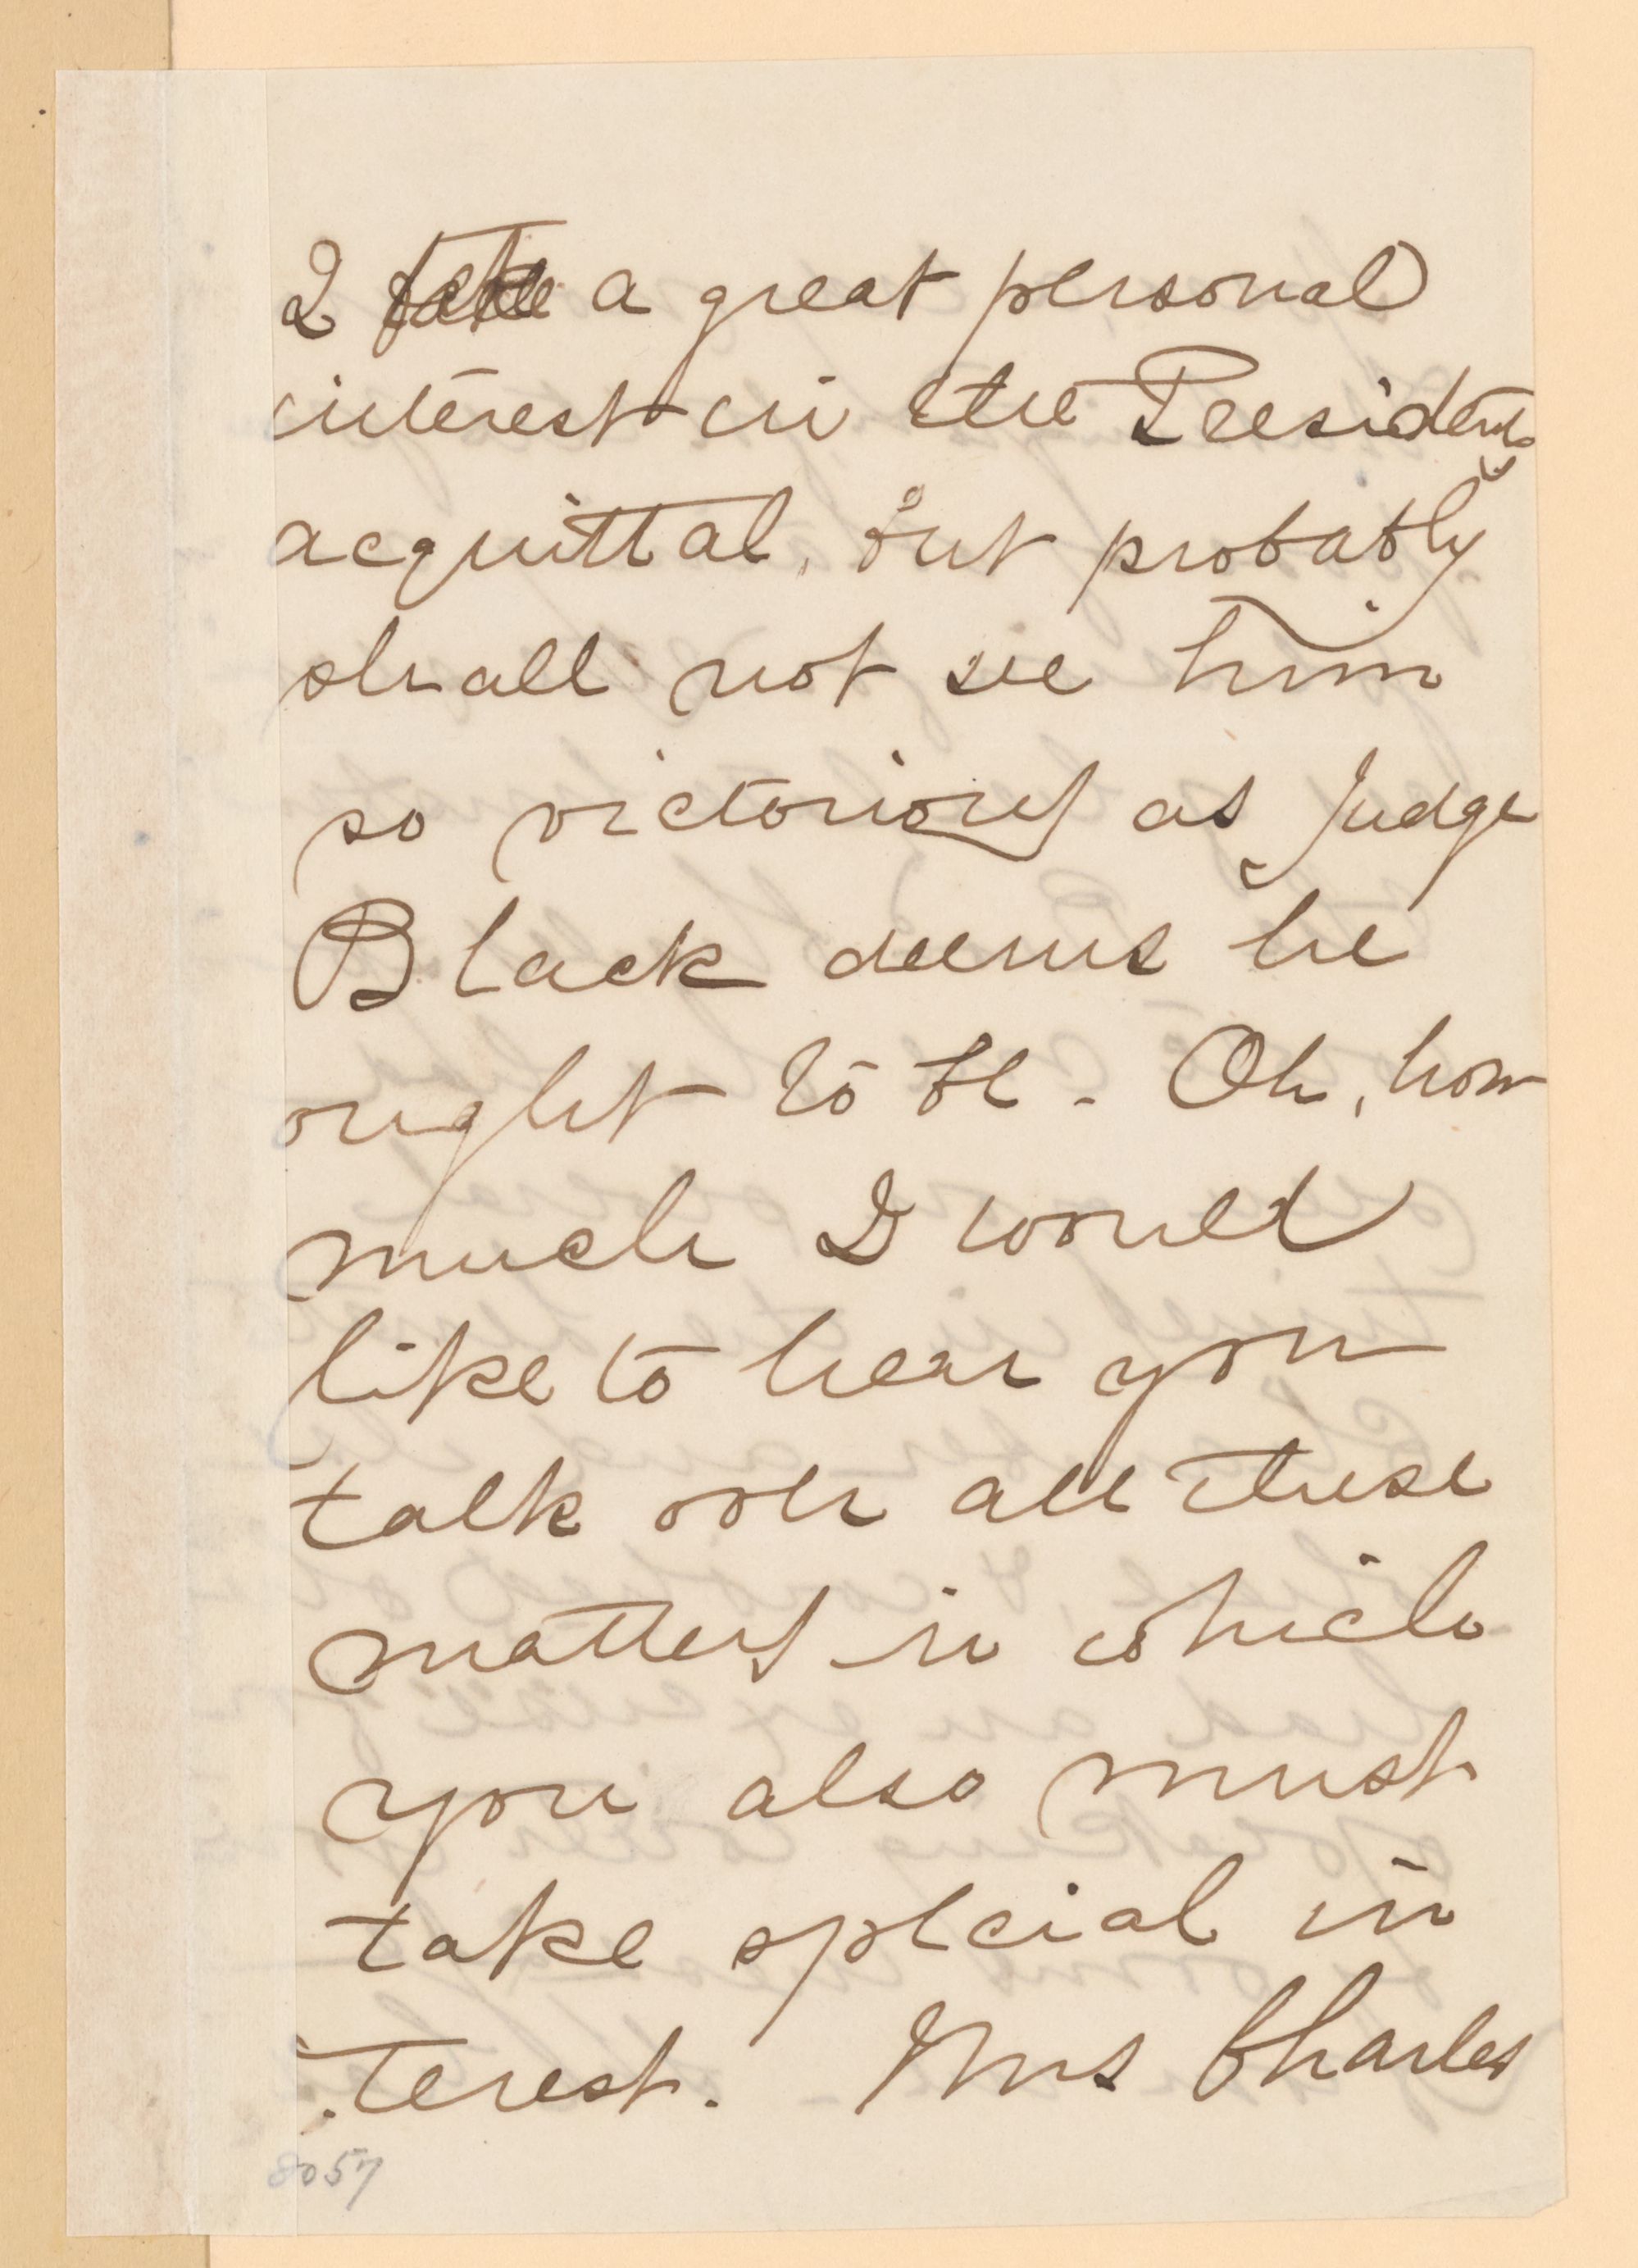 I take a great personal
interest in the Presidents
acquittal, but probably
shall not see him
so victorious as Judge
Black deems he
ought to be. Oh, how
much I would
like to hear you
talk over all these
matters in which
you also must
take special in
terest. Mrs Charles
8057